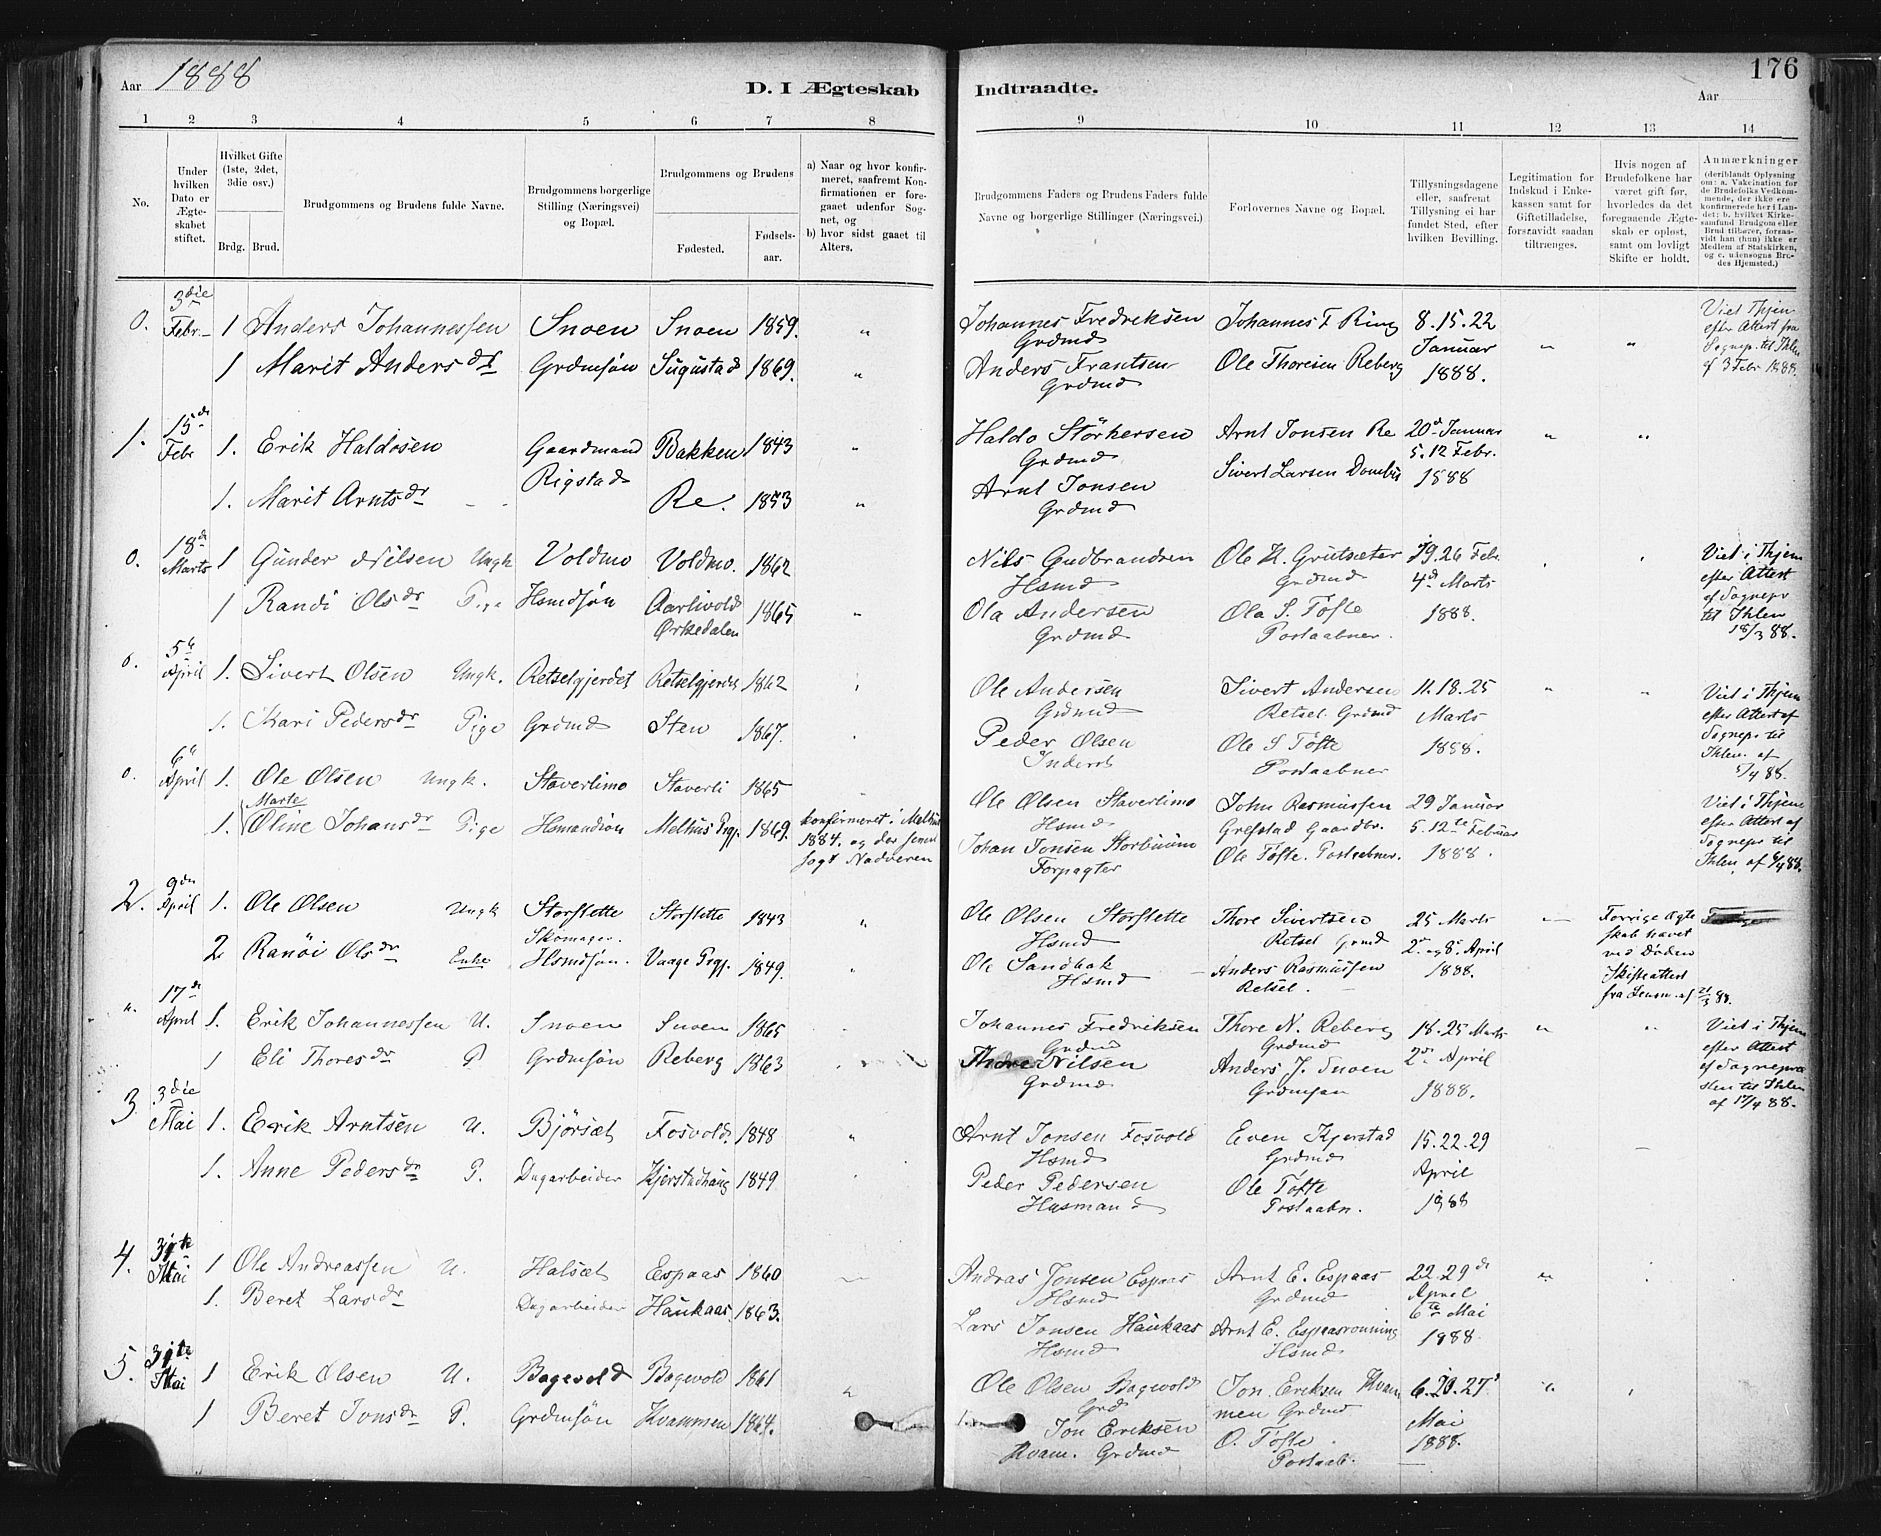 Aar 1888
D. I Ægteskab
Indtraadte.
176
Aar
1 2 3 4 5 6 7 8
9 10 11 12 13 14
No.
Under hvilken Dato er Ægteskabet stiftet.
Hvilket Gifte (1ste, 2det, 3die osv.)
Brdg. Brud.
Brudgommens og Brudens fulde Navne.
Brudgommens borgerlige Stilling (Næringsvei) og Bopæl.
Brudgommens og Brudens
Fødested.
Fødsels-aar.
a) Naar og hvor konfirmeret, saafremt Konfirmationen er foregaaet udenfor Sognet, og
b) hvor sidst gaaet til Alters.
Brudgommens Faders og Brudens Faders fulde Navne og borgerlige Stillinger (Næringsvei.)
Forlovernes Navne og Bopæl.
Tillysningsdagene eller, saafremt Tillysning ei har fundet Sted, efter hvilken Bevilling.
Legitimation for Indskud i Enkekassen samt for Giftetilladelse, forsaavidt saadan tiltrænges.
Hvis nogen af Brudefolkene har været gift før, hvorledes da det foregaaende Ægteskab er opløst, samt om lovligt Skifte er holdt.
Anmærkninger
(deriblandt Oplysning om: a. Vakcination for de Brudefolks Vedkommende, der ikke ere konfirmerede her i Landet: b. hvilket Kirkesamfund Brudgom eller Brud tilhører, forsaavidt han (hun) ikke er Medlem af Statskirken, og c. udensogns Brudes Hjemsted.)
0. 3die Febr. 1 Anders Johannessen Snoen Snoen 1859. "
Johannes Fredriksen Grdmd Johannes F Ring 8. 15. 22 Januar 1888. " "
Viet i Thjem efter Attest fra Sognep. til Ihlen af 3 Febr 1888.
1 Marit Andersdr Grdmsøn Sugustad 1869. "
Anders Frantsen Grdmd Ole Thoresen Reberg
1. 15de Febr 1. Erik Haldosen Gaardmand Rigstad Bakken 1843 "
Haldo Störkersen Grdmd Arnt Jonsen Re 20de Januar 5. 12 Febr. 1888 " "
1. Marit Arntsdr - - Re. 1853 "
Arnt Jonsen Grdmd Sivert Larsen
0. 18de Marts 1 Gunder Nilsen Ungk Voldmo Voldmo. 1862
Nils Gudbrandsen Hsmd Ole H. Grutsæter Grdmd 19. 26 Febr. 4de Marts 1888.
Viet i Thjem efter Attest af Sognepr til Ihlen 18/3 88.
1 Randi Olsdr Pige Hsmdsøn Aarlivold Ørkedalen 1865 "
Ola Andersen Grdmd Ola S. Tøfte Postaabner.
0. 5te April 1. Sivert Olsen Ungk. Retselgjerdet Retselgjerdet 1862
Ole Andersen Grdmd Sivert Andersen Retsel. Grdmd 11. 18. 25 Marts 1888. " "
Viet i Thjem efter Attest af Sognepr til Ihlen. af 5/4 88.
1. Kari Pedersdr Pige Grdmd Sten 1867.
Peder Olsen Inderst Ole S Tøfte Postaabner
0. 6te April 1. Ole Olsen Ungk. Staverlimo Staverli 1865
Ole Olsen Staverlimo Hsmd John Rasmussen Grefstad Gaardbr. 29 Januar 5. 12te Februar 1888.
Viet i Thjem efter Attest af Sognepr til Ihlen, af 6/4 88.
Marte
1. Oline Johansdr Pige Hsmandsøn Melhus Prgj. 1869. konfirmeret i Melhus 1884. og der senest søgt Nadveren
Johan Jonsen Forpagter Ole Tøfte. Postaabner.
2. 9de April 1. Ole Olsen Ungk Storslette Skomager. Storslette 1843 "
Ole Olsen Storslette Hsmd Thore Sivertsen Retsel Grmd 25 Marts 2de og 8de April 1888. -
Forrige Ægteskab hævet ved Døden Skifteattest fra Lensm. af 21/3 88.
2 Ranöi Olsdr Enke Hsmdsøn. Vaage Prgj. 1849. "
Ole Sandbak Hsmd Anders Rasmussen Retsel.
". 17de April 1. Erik Johannessen U. Snoen Snoen 1865
Johannes Fredriksen Grdmd Thore N. Reberg Grdmd 18. 25 Marts 2de April 1888. " "
Viet i Thjem efter Attest af Sognepræsten til Ihlen af 17/4 88.
1 Eli Thoresdr P Grdmsøn Reberg 1863
Thore Nilsen Grdmd Anders J. Snoen Grdmsøn
3 3die Mai 1. Erik Arntsen U. Bjørsæt Fosvold. 1848 "
Arnt Jonsen Fosvold Hsmd Even Kjerstad Grdmd 15. 22. 29 April 1888 -
1. Anne Pedersdr P. Dagarbeider Kjerstadhaug 1849
Peder Pedersen Husmand Ole Tøfte Postaabn.
4. 31te Mai 1 Ole Andreassen U. Halsæt Espaas 1860
Andras Jonsen Espaas Hsmd Arnt E. Espaas Grdmd 22. 29de April 6te Mai 1888 "
1. Beret Larsdr Dagarbeider Haukaas 1863.
Lars Jonsen Haukaas Hsmd Arnt E. Espaasrønning Hsmd
5. 31te Mai 1 Erik Olsen U. Bagevold Bagevold 1861 "
Ole Olsen Bagevold Grd Jon Eriksen Kvammen Grdmd 6. 20. 27 Mai 1888. "
1 Beret Jonsdr P. Grdmsøn Kvammen 1864.
Jon Eriksen Kvam. Grdmd O. Tøfte. Postaab.